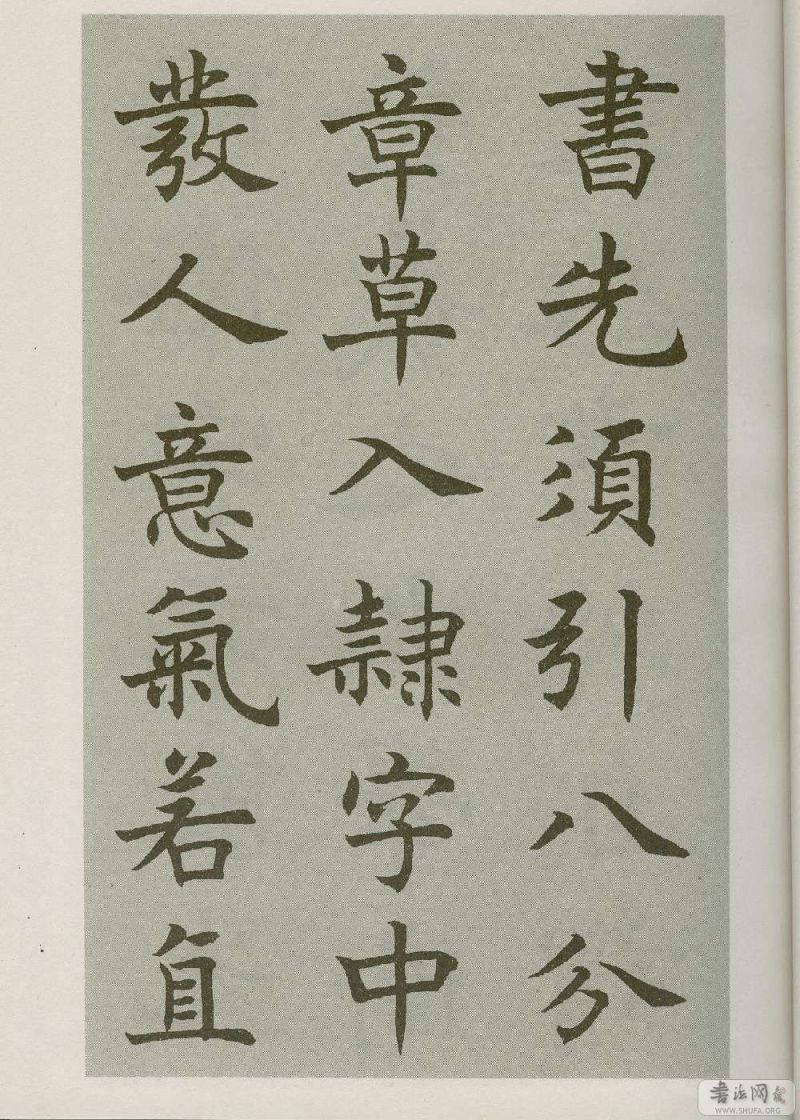 書先須引八分
章草入隷字中
發人意氣若直
書法网
WWW.SHUFA.ORG